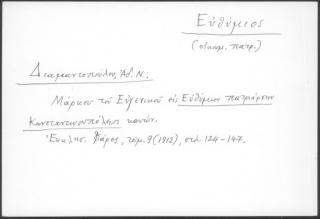 Εὐθύμιος
(οἰκουμ. πατρ.)
Διαμαντοπούλου, Ἀδ. Ν.:
Μάρκου τοῦ Εὐγενικοῦ εἰς Εὐθύμιον πατριάρχην
Κωνσταντινουπόλεως κανών.
Ἐκκλησ. Φάρος, τόμ. 9 (1912), σελ. 124-147.